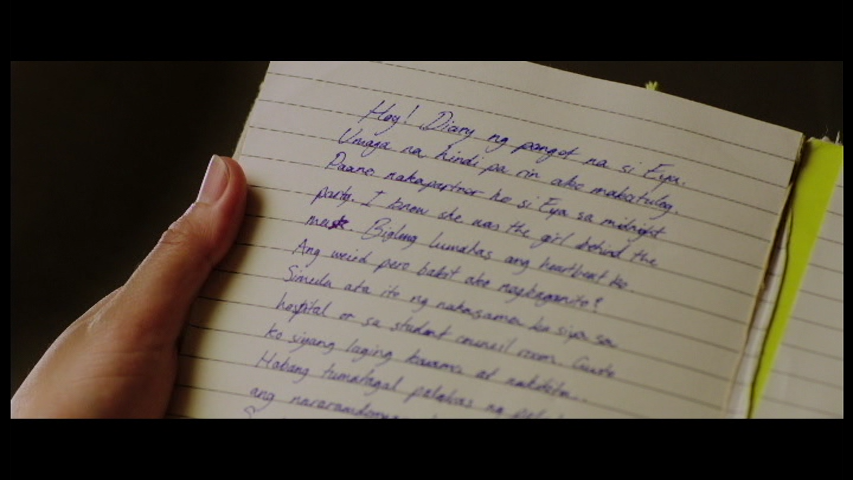 Hoy! Diary ng panget na si Eya.
Umaga na, hindi pa rin ako makatulog.
Paano nakapartner ko si Eya sa midnight
party. I knew she was the girl behind the
mask. Biglang lumakas ang heartbeat ko.
Ang weird pero bakit ako nagkaganito?
Simula ata ito ng nakasama ko siya sa
hospital or sa student council room. Gusto
ko siyang laging kasama at nakikita..
Habang tumatagal palakas ng
ang nararamdaman